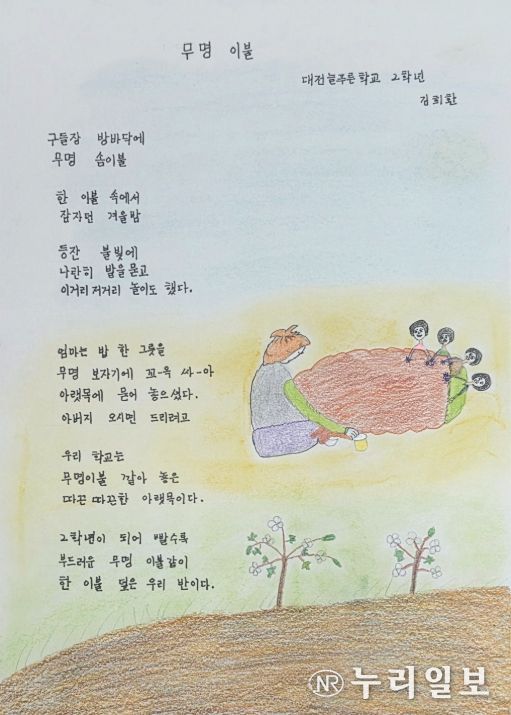 무명 이불
대전늘푸른학교 2학년
김희환
구들장 방바닥에
무명 솜이불
한 이불 속에서
잠자던 겨울밤
등잔 불빛에
나란히 발을 묻고
이거리저거리 놀이도 했다.
엄마는 밥 한 그릇을
무명 보자기에 꼬-옥 싸-아
아랫목에 묻어 놓으셨다.
아버지 오시면 드리려고
우리 학교는
무명이불 깔아 놓은
따끈따끈한 아랫목이다.
2학년이 되어 빨수록
부드러운 무명 이불같이
한 이불 덮은 우리 반이다.
NR 누리일보